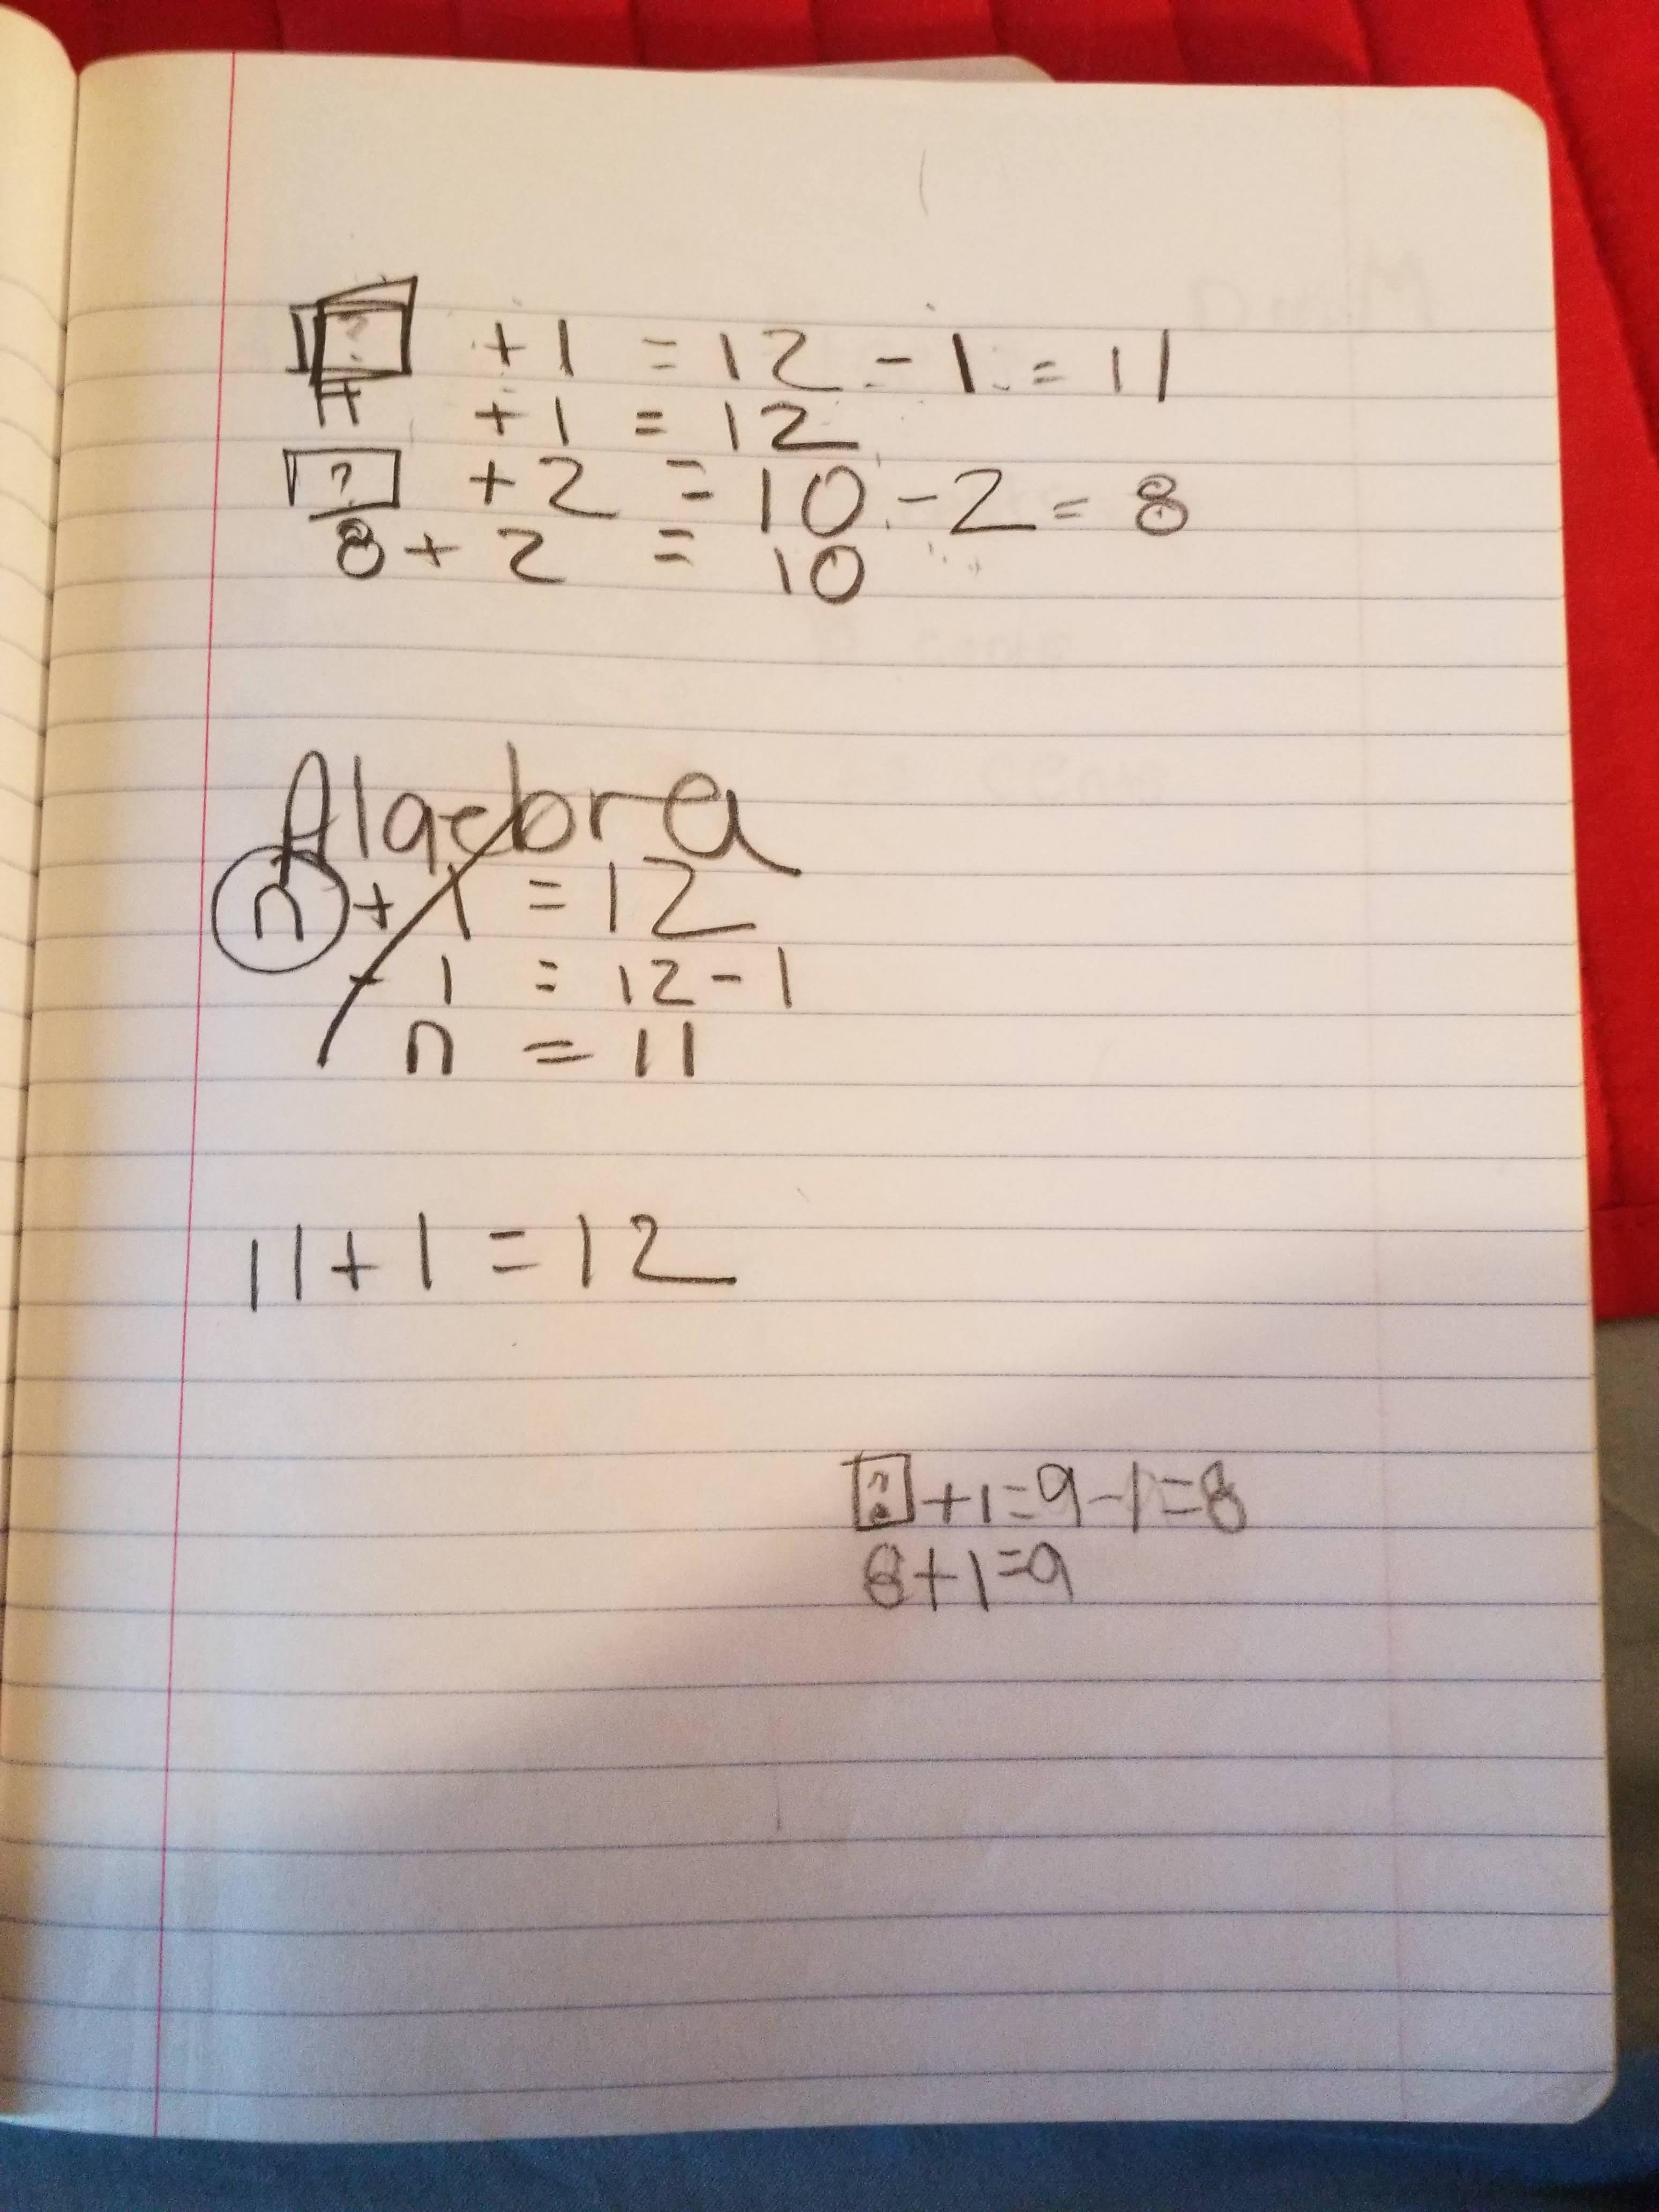 ? +1 = 12 - 1 = 11
11 +1 = 12
? +2 = 10 - 2 = 8
8 + 2 = 10
Algebra
n + 1 = 12
- 1 = 12 - 1
n = 11
11 + 1 = 12
? +1=9-1=8
8+1=9